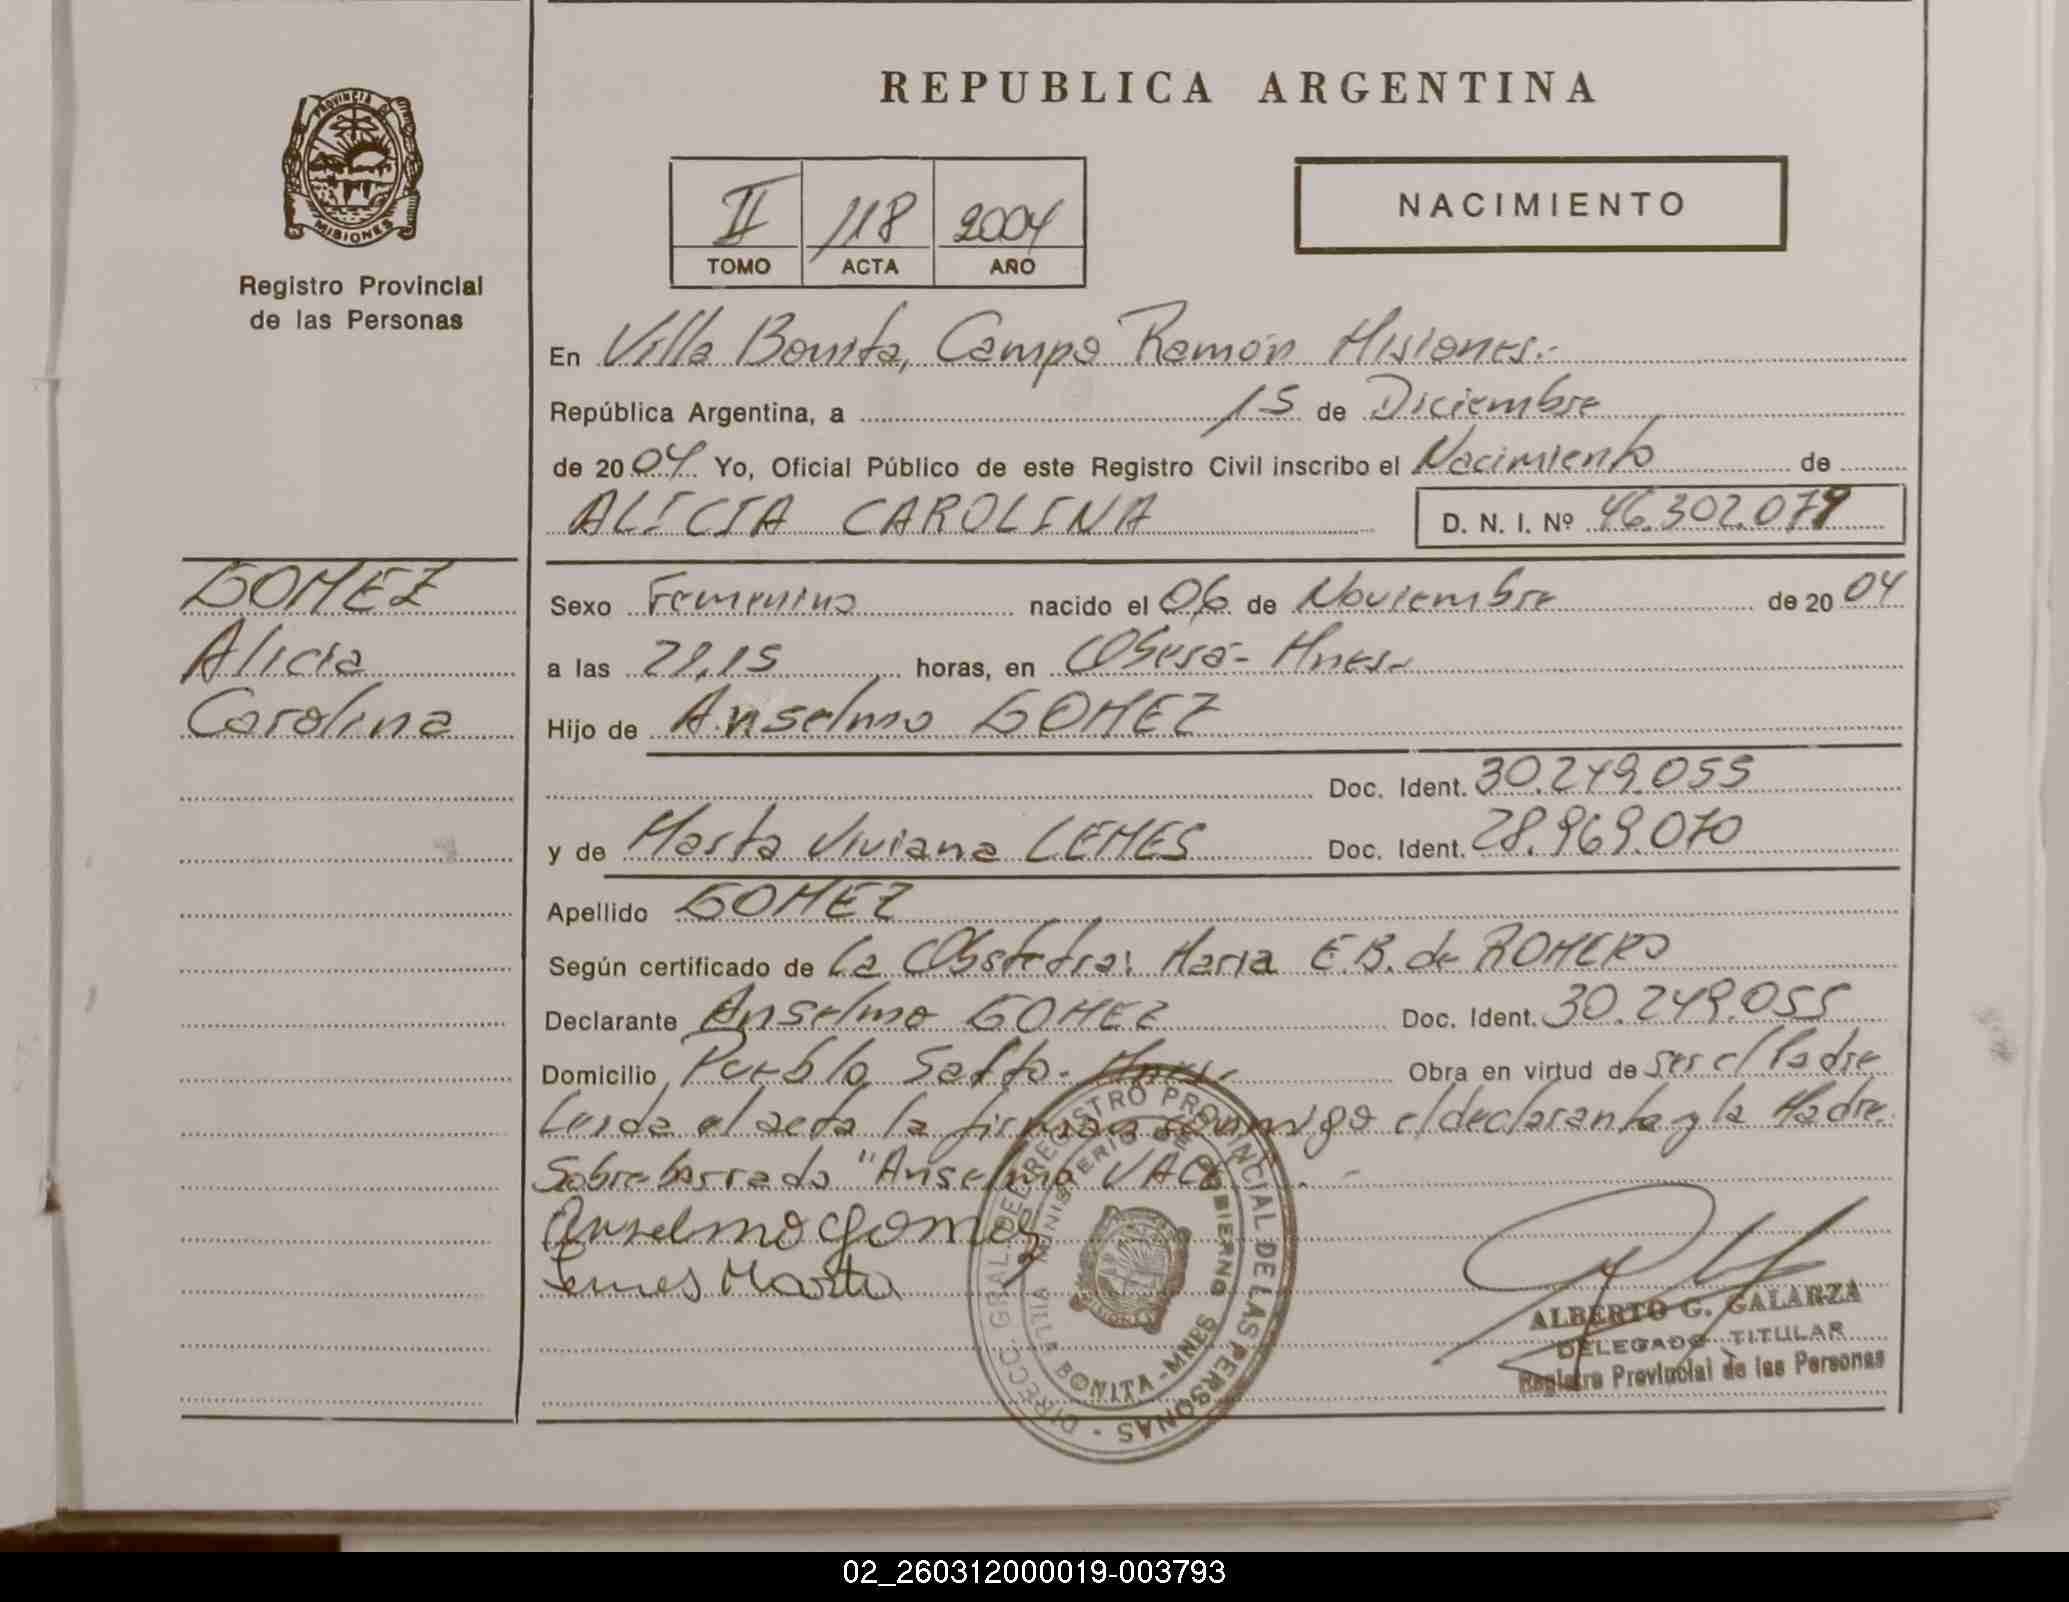 PROVINCIA DE
MISIONES
Registro Provincial
de las Personas
REPUBLICA ARGENTINA
II 118 2004
TOMO ACTA AÑO
NACIMIENTO
En Villa Bonita, Campo Ramón Misiones.-
República Argentina, a 15 de Diciembre
de 2004 Yo, Oficial Público de este Registro Civil inscribo el Nacimiento de
ALICIA CAROLINA D. N. I. Nº 46.302.079
GOMEZ
Alicia
Carolina
Sexo Femenino nacido el 06 de Noviembre de 2004
a las 21,15 horas, en Oberá- Mnes.-
Hijo de Anselmo GOMEZ
Doc. Ident. 30.249.055
y de Marta Viviana LEMES Doc. Ident. 28.969.070
Apellido GOMEZ
Según certificado de La Obstetra: Maria E.B. de ROMERO
Declarante Anselmo GOMEZ Doc. Ident. 30.249.055
Domicilio Pueblo Salto- Mnes.- Obra en virtud de ser el Padre
Leida el acta la firman conmigo el declarante y la Madre.
Sobreborrado "Anselmo VALE
Anselmo Gomez
Lemes Marta
DIRECC. GRAL. DEL REGISTRO PROVINCIAL DE LAS PERSONAS
MINISTERIO DE GOBIERNO
VILLA BONITA - MNES
ALBERTO G. GALARZA
DELEGADO TITULAR
Registro Provincial de las Personas
02_260312000019-003793